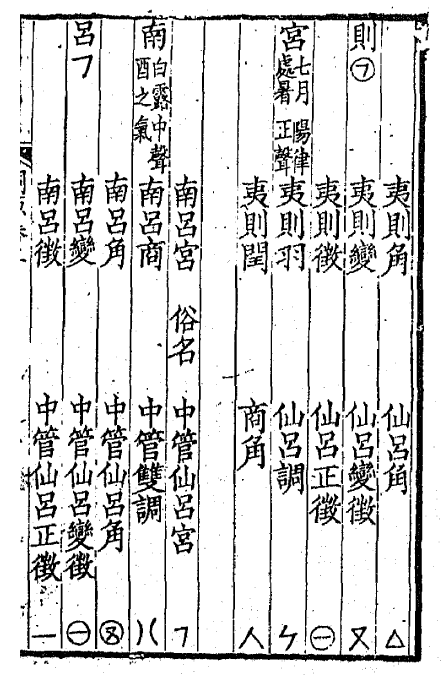 夷則角 仙呂角 △
則㋆ 夷則變 仙呂變徵 ㄡ
夷則徵 仙呂正徵 ㊀
宮 七月 陽律 處暑 正聲 夷則羽 仙呂調 ㄣ
夷則閏 商角 人
南呂宮 俗名 中管仙呂宮 ㇇
南 白露 中聲 酉之氣 南呂商 中管雙調 八
南呂角 中管仙呂角
呂㇇ 南呂變 中管仙呂變徵 ㊀
南呂徵 中管仙呂正徵 一